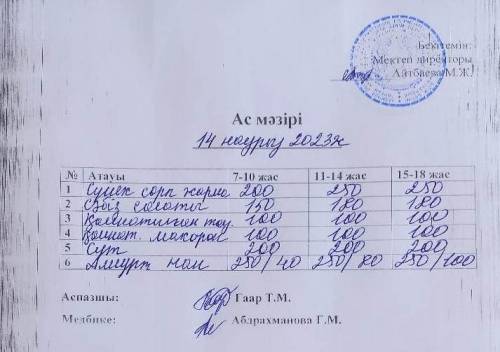 Бекітемін:
Мектеп директоры
Айтбаева М.Ж.
Ас мәзірі
14 наурыз 2023ж
№ Атауы 7-10 жас 11-14 жас 15-18 жас
1 сорп жарма 200 250 250
2 150 180 180
3 100 100 100
4 макарон 100 100 100
5 Сүт 200 200 200
6 нан 250/40 250/80 250/100
Аспазшы: Гаар Т.М.
Медбике: Абдрахманова Г.М.